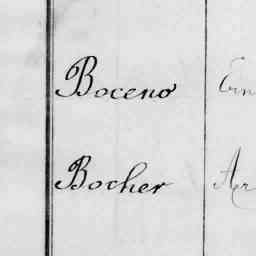 Boceno
Bocher